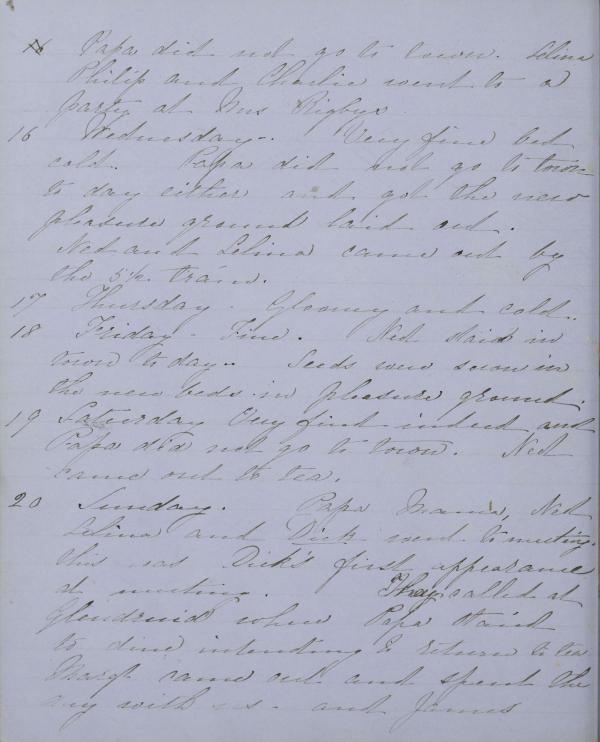 Papa did not go to town. Selina
Philip and Charlie went to a
party at Mrs Rigbys
16 Wednesday - Very fine but
cold. Papa did not go to town
to day either and got the new
pleasure ground laid out.
Ned and Selina came out by
the 5½ train.
17 Thursday - Gloomy and cold.
18 Friday - Fine. Ned staid in
town to day - Seeds were sown in
the new beds in pleasure ground.
19 Saturday Very fine indeed and
Papa did not go to town. Ned
came out to tea.
20 Sunday. Papa Mama, Ned
Selina and Dick went to meeting.
this was Dick's first appearance
at meeting. They called at
Glendruid where Papa staid
to dine intending to return to tea
Margt came out and spent the
day with us - and James